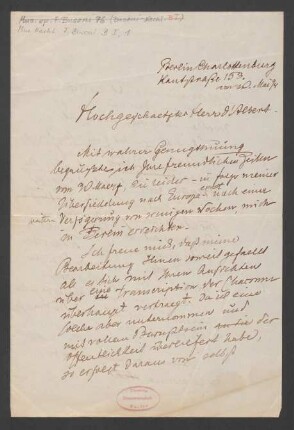 Mus. ep. F. Busoni 76 (Busoni-Nachl.
Mus. Nachl. F. Busoni B I, 1
Berlin-Charlottenburg
Kantstraße 153.
Mai 94
Hochgeschaetzter Herr d'Albert.
Mit wahrer Genugthuung
begrüsste ich Ihre freundlichen Zeilen
vom die leider – in folge meiner
Übersiedlung nach Europa – erst nach einer
weiteren Verzögerung von einigen Wochen, mich
in Berlin erreichten.
Ich freue mich, dass meine
Bearbeitung Ihnen soweit gefaellt
als es sich mit Ihren Ansichten
über eine Transcription der Chaconne
überhaupt vertraegt. Da ich eine
solche aber unternommen und
mit vollem Bewußtsein sowie der
Öffentlichkeit überliefert habe,
so ergiebt daraus von selbst